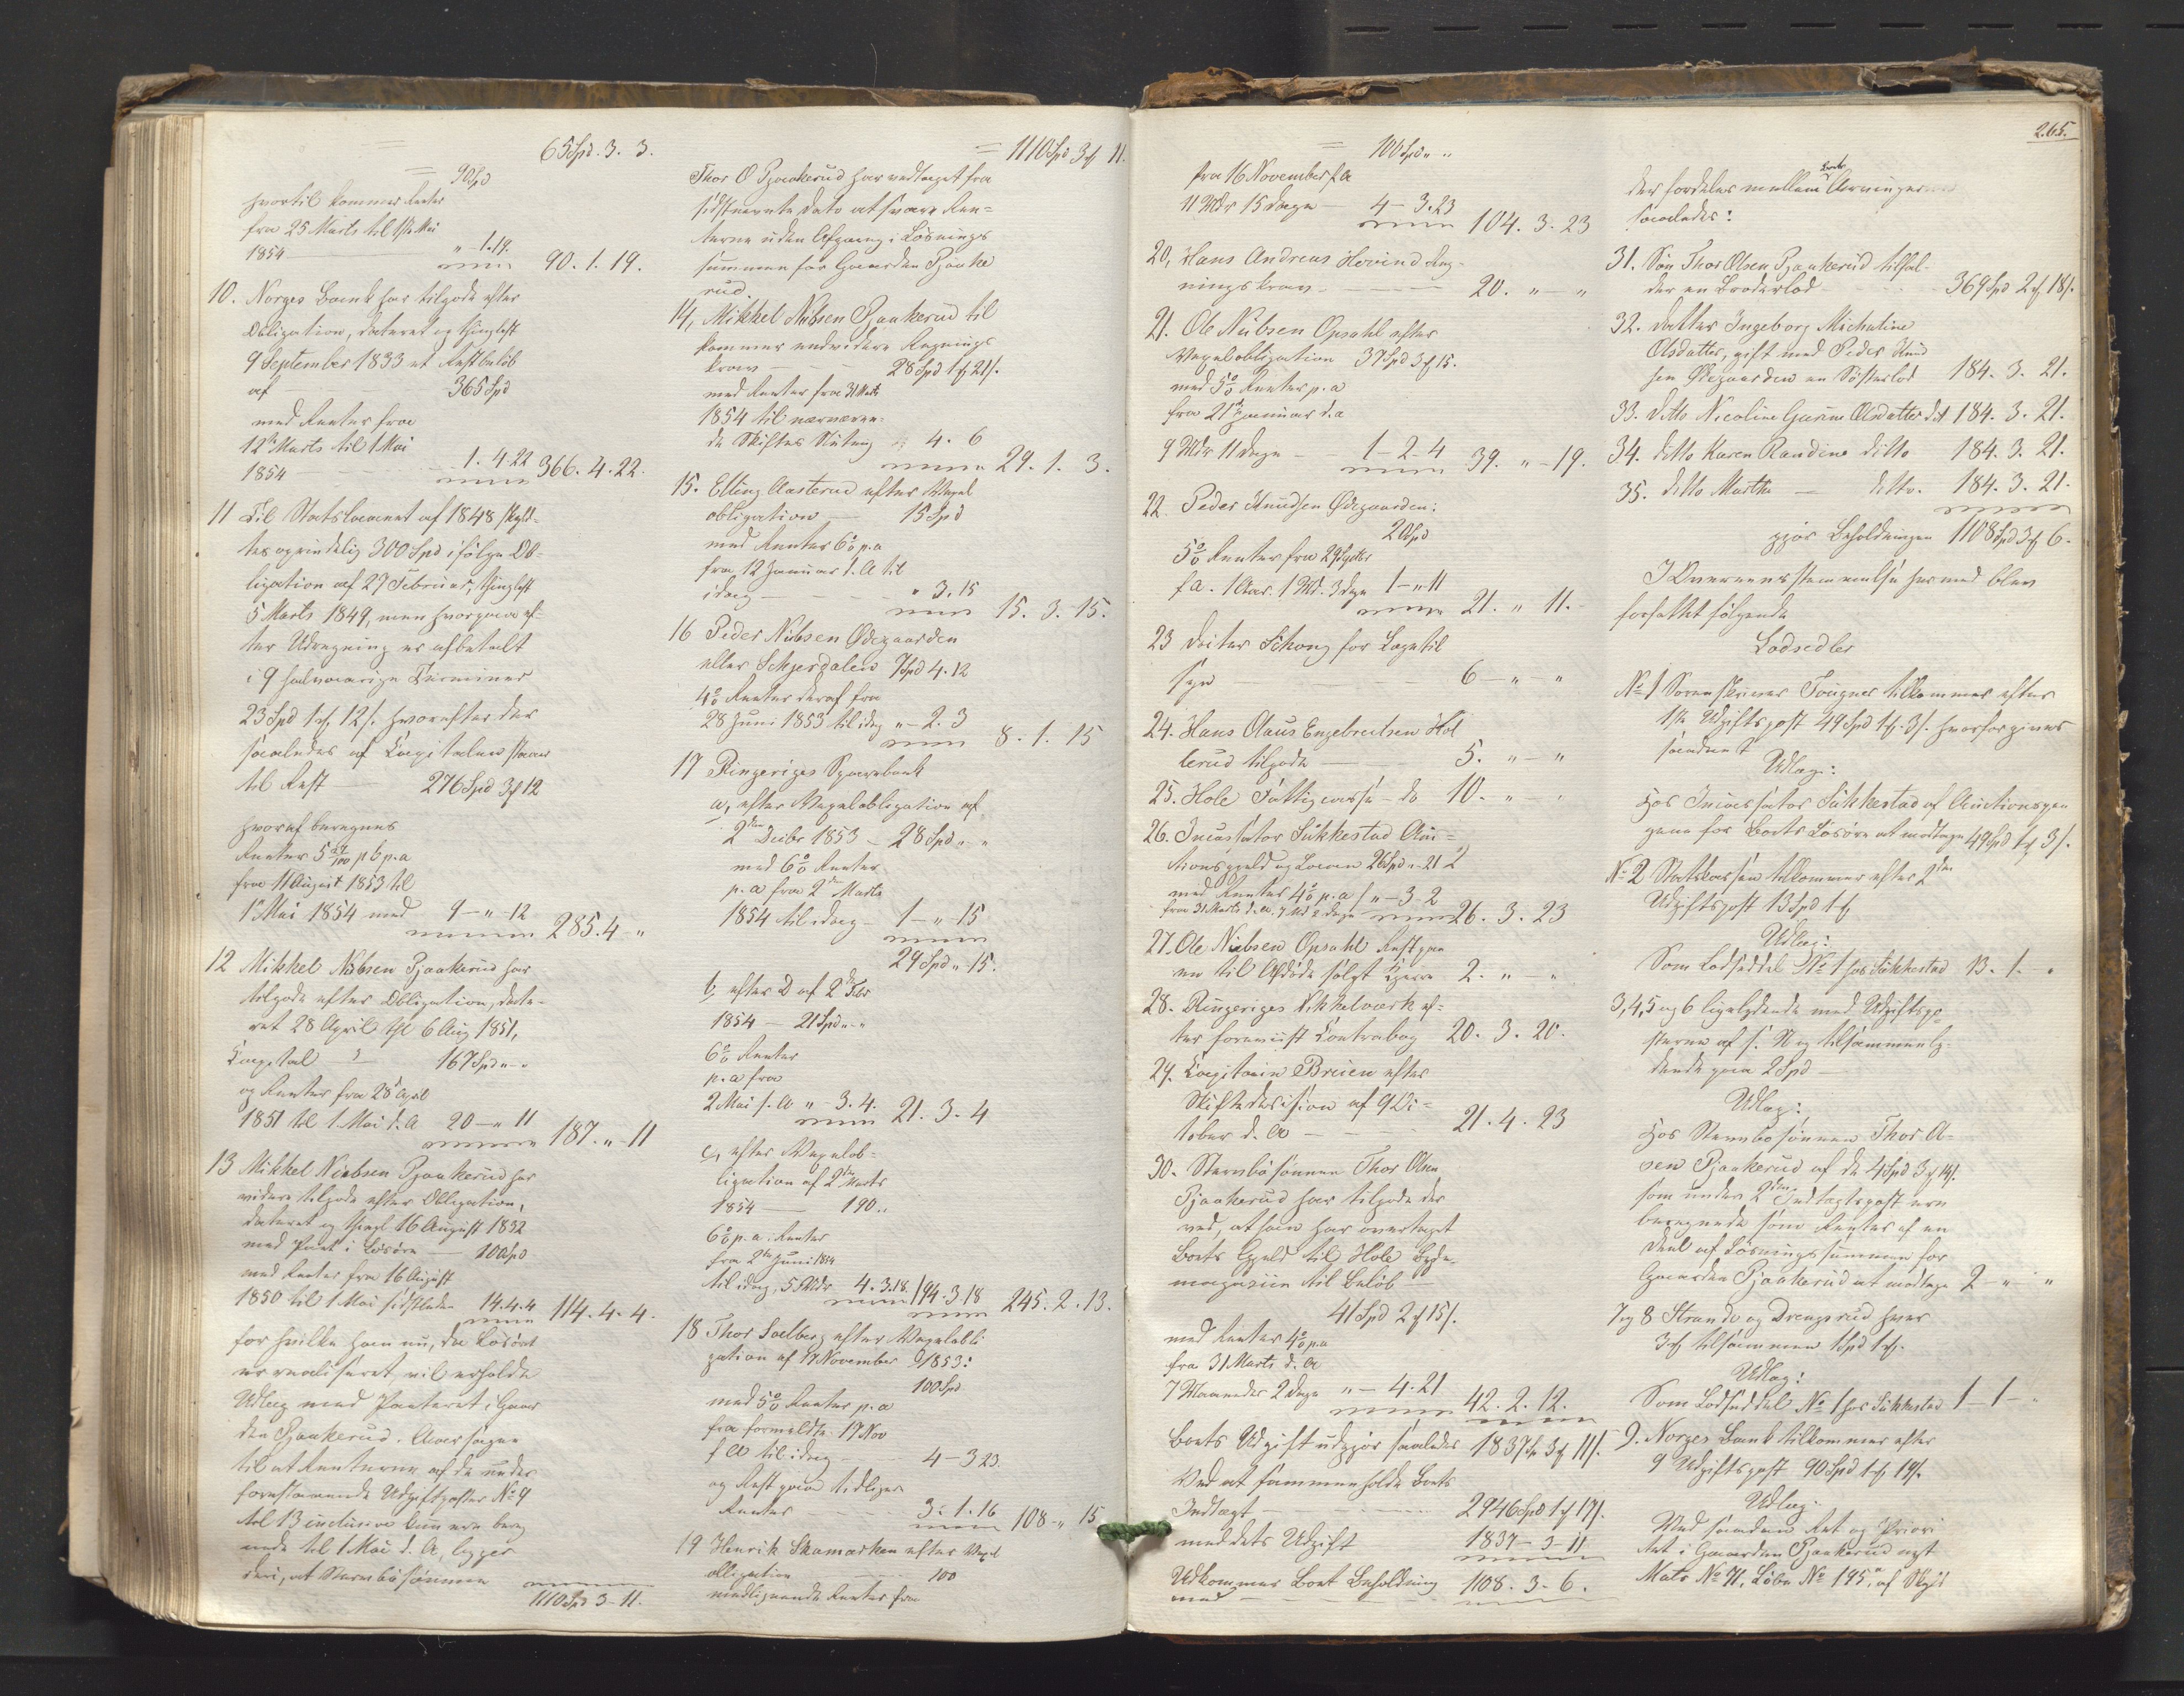 65 Spd. 3. 3.
90 Spd
hvortil kommer Renter
fra 25 Marts til 1ste Mai
1854 " - 1. 19. 90. 1. 19.
10. Norges Bank har tilgode efter
Obligation, dateret og thinglæst
9 September 1833 et Restbeløb
af 365 Spd
med Renter fra
12te Marts til 1 Mai
1854 1. 4. 22 366. 4. 22.
11 Til Statslaanet af 1848 skyld-
tes oprindelig 300 Spd ifølge Ob-
ligation af 27 Februar, thinglæst
5 Marts 1849, men hvorpaa ef-
ter Udregning er afbetalt
i 9 halvaarige Terminer
23 Spd 1 ort 12 s. hvorefter der
saaledes af Capitalen staaer
til Rest 276 Spd 3 ort 12
hvoraf beregnes
Renter p.a
fra 11 August 1853 til
1ste Mai 1854 med 9 - " - 12 285. 4 - "
12 Mikkel Nilsen Bjaakerud har
tilgode efter Obligation, date-
ret 28 April thl 6 Aug 1851,
Capital 167 Spd " - "
og Renter fra 28 April
1851 til 1 Mai d. A 20 - " 11 187. " - 11
13 Mikkel Nielsen Bjaakerud har
videre tilgode efter Obligation,
dateret og thingl 16 August 1832
med Pant i Løsøre 100 Spd
med Renter fra 16 August
1850 til 1 Mai sidstleden 14. 4. 4 114. 4. 4.
for hvilke han nu, da Løsøret
er realiseret, vil erholde
Udlæg med Panteret i Gaar
den Bjaakerud. Aarsagen
til at Renterne af de under
foranstaaende Udgiftsposter No 9
til 13 inclusive kun ere bereg
nede til 1 Mai d. A, ligger
deri, at Stervbosønnen
1110 Spd 3 - 11.
= 1110 Spd 3 ort 11.
Thor O Bjaakerud har vedtaget fra
sidstnævnte Dato at svare Ren-
terne uden Afgang i Løsnings
summen for Gaarden Bjaake
rud.
14, Mikkel Nilsen Bjaakerud til
kommer endvidere Regnings
krav 28 Spd 1 ort 21 s.
med Renter fra 31 Marts
1854 til nærværen-
de Skiftes Slutning 4. 6
29. 1. 3.
15. Elling Aasterud efter Vexel
obligation 15 Spd
med Renter 6% p.a
fra 12 Januar d. A til
idag " 3. 15
15. 3. 15.
16 Peder Nilsen Ødegaarden
eller Schjerdalen 7 Spd 4. 12
4% Renter deraf fra
28 Juni 1853 til idag " - 2. 3
8. 1. 15
17 Ringeriges Sparebank
a, efter Vexelobligation af
2den Decbr 1853 - 28 Spd " - "
med 6% Renter
p. a fra 2den Marts
1854 til idag - 1 - " - 15
29 Spd " 15.
b, efter D af 2den Febr
1854 - 21 Spd " - "
6% Renter
p. a fra
2 Mai s. A " - 3. 4. 21. 3. 4
c, efter Vexelob-
ligation af 2den Marts
1854 190 "
6% p. a. Renter
fra 2den Juni 1854
til idag, 5 Mdr 4. 3. 18. 194. 3 18 245. 2. 13.
18 Thor Solberg efter Vexelobli
gation af 17 November 1853:
100 Spd
med 5% Renter p. a
fra formeldte 17 Nov
f A til idag 4 - 3 23.
og Rest paa tidligere
Renter 3: 1. 16 108 - " 15
19 Henrik Skamarken efter Vexel
obligation 100
med lignende Renter fra
= 100 Spd " "
fra 16 November f. A
11 Mdr 15 Dage - 4 - 3. 23
104. 3. 23
20, Hans Andreas Hovind Reg-
ningskrav 20. " - "
21. Ole Nilsen Opsahl efter
Vexelobligation 37 Spd 3 ort 15.
med 5% Renter p. a
fra 21de Januar d. a
9 Mdr 11 Dage - 1 - 2 - 4 39. " - 19.
22. Peder Knudsen Ødegaarden:
20 Spd
5% Renter fra 29 Septbr
f a. 1 Aar. 1 Md. 3 Dage 1 - " 11
21. " 11.
23 Doctor Schong for Lægetil
syn 6 - " - "
24. Hans Olaus Engebretsen Hol
lerud tilgode 5. " - "
25. Hole Fattigcasse - do 10. " - "
26. Incassator Sukkestad Auc-
tionsgjeld og Laan 26 Spd " - 21
med Renter 4% p. a " - 3 - 2
fra 31 Marts d. A. 7 Md 2 Dage 26. 3. 23
27. Ole Nielsen Opsahl Rest paa
en til Afdøde solgt 2. " - "
28. Ringeriges Nikkelværk ef-
ter foreviist Contrabog 20. 3. 20.
29. Capitain Breien efter
Skiftedecision af 9 Oc-
tober d. A 21. 4. 23
30. Stervbosønnen Thor Olsen
Bjaakerud har tilgode der
ved, at han har overtaget
Boets Gjeld til Hole Bygde
magasin til Beløb
41 Spd 2 ort 15 s.
med Renter 4% p.a
fra 31 Marts d. A
7 Maaneder 2 Dage " - 4. 21
42. 2. 12.
Boets Udgift udgjør saaledes 1837 Sp 3 ort 11 s.
Ved at sammenholde Boets
Indtægt 2946 Spd 1 ort 17 s.
med dets Udgift 1837 - 3 - 11
Udkommer Boet Beholdning 1108. 3 - 6.
med
265.
der fordeles mellem Boets Arvinger
saaledes:
31. Søn Thor Olsen Bjaakerud tilfal-
der en Broderlod 369 Spd 2 ort 18 s.
32. Datter Ingeborg Michaline
Olsdatter, gift med Peder Knud
sen Ødegaarden en Søsterlod 184. 3. 21.
33. Ditto Nicoline Gurine Olsdatter dito 184. 3. 21.
34. ditto Karen Randine ditto 184. 3. 21.
35. ditto Marthe - ditto. 184. 3. 21.
gjør Beholdningen 1108 Spd 3 ort 6 -
I Overeensstemmelse hermed blev
forfattet følgende
Lodsedler
No 1 Sorenskriver Fougner tilkommer efter
1ste Udgiftspost 49 Spd 1 ort. 3 s. hvorfor gives
saadant
Udlæg:
Hos Incassator Sukkestad af Auctionspen
gene for Boets Løsøre at modtage 49 Spd 1 ort 3 s.
No 2 Statskassen tilkommer efter 2den
Udgiftspost 13 Spd 1 ort
Udlæg:
Som Lodseddel No 1 hos Sukkestad 13. 1. "
3, 4, 5 og 6 ligelydende med Udgiftspo-
sterne af s. N og tilsammen ly-
dende paa 2 Spd
Udlæg:
Hos Stervbosønnen Thor Ol-
sen Bjaakerud af de 4 Spd 3 ort 14 s.
som under 2den Indtægtspost ere
beregnede som Renter af en
Deel af Løsningssummen for
Gaarden Bjaakerud at modtage 2 - " - "
7 og 8 Strande og Drengsrud hver
3 ort tilsammen 1 Spd 1 ort.
Udlæg:
Som Lodseddel No 1 hos Sukkestad 1 - 1 - "
9. Norges Bank tilkommer efter
9 Udgiftspost 90 Spd 1 ort 19 s.
Udlæg.
Med saadan Ret og Priori
tet i Gaarden Bjaakerud nyt
Matr No 71, Løbe No 195a, af Skyld